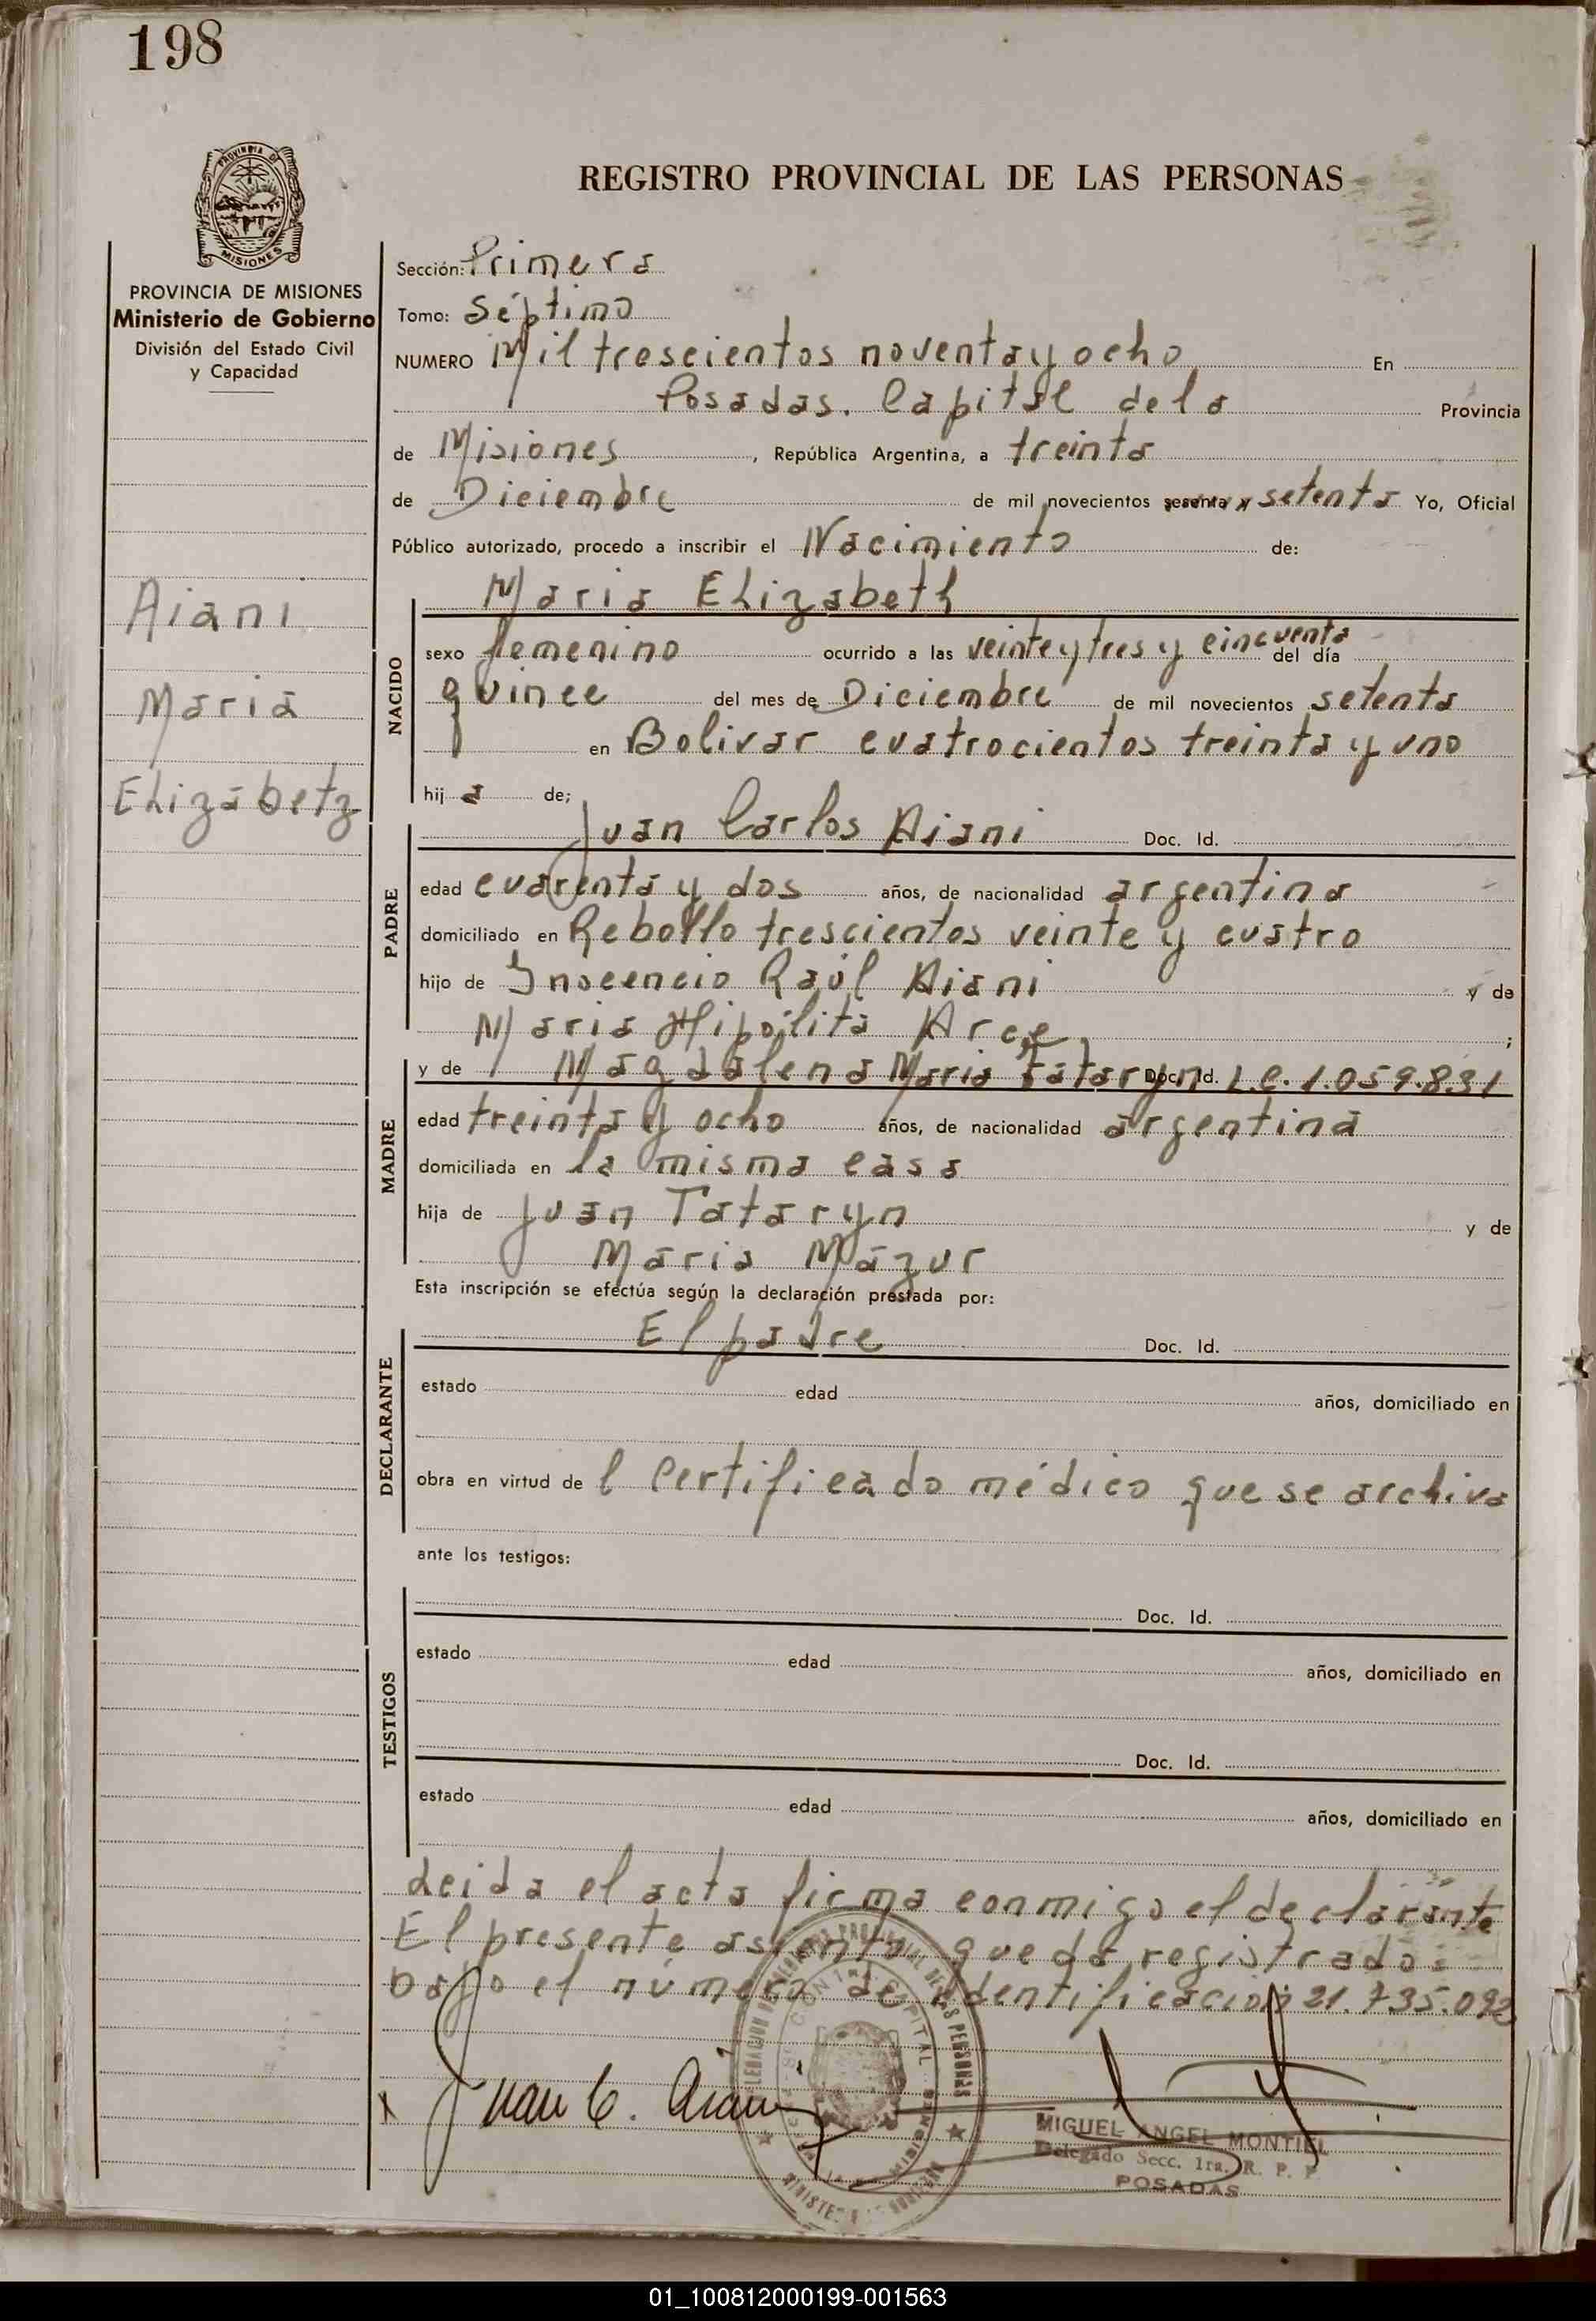 198
PROVINCIA DE
MISIONES
REGISTRO PROVINCIAL DE LAS PERSONAS
PROVINCIA DE MISIONES
Ministerio de Gobierno
División del Estado Civil
y Capacidad
Aiani
Maria
Elizabetz
Sección: Primera
Tomo: Séptimo
NUMERO Mil trescientos noventa y ocho En
Posadas. Capital de la Provincia
de Misiones, República Argentina, a treinta
de Diciembre de mil novecientos sesenta y setenta Yo, Oficial
Público autorizado, procedo a inscribir el Nacimiento de:
NACIDO
Maria Elizabeth
sexo femenino ocurrido a las veinte y tres y cincuenta del día
quince del mes de Diciembre de mil novecientos setenta
en Bolivar cuatrocientos treinta y uno
hij a de;
PADRE
Juan Carlos Aiani Doc. Id.
edad cuarenta y dos años, de nacionalidad argentina
domiciliado en Rebollo trescientos veinte y cuatro
hijo de Inocencio Raúl Aiani y de
Maria Hipólita Arce ;
MADRE
y de Magdalena Maria Tataryn Doc. Id. L.C. 1.059.831
edad treinta y ocho años, de nacionalidad argentina
domiciliada en la misma casa
hija de Juan Tataryn y de
Maria Mazur
Esta inscripción se efectúa según la declaración prestada por:
DECLARANTE
El padre Doc. Id.
estado edad años, domiciliado en
obra en virtud de l Certificado médico que se archiva
ante los testigos:
TESTIGOS
Doc. Id.
estado edad años, domiciliado en
Doc. Id.
estado edad años, domiciliado en
Leida el acta firma conmigo el declarante
El presente asiento queda registrado
bajo el número de identificación 21.735.092
x Juan C. Aiani
MIGUEL ANGEL MONTIEL
Delegado Secc. 1ra. R. P. P.
POSADAS
01_100812000199-001563